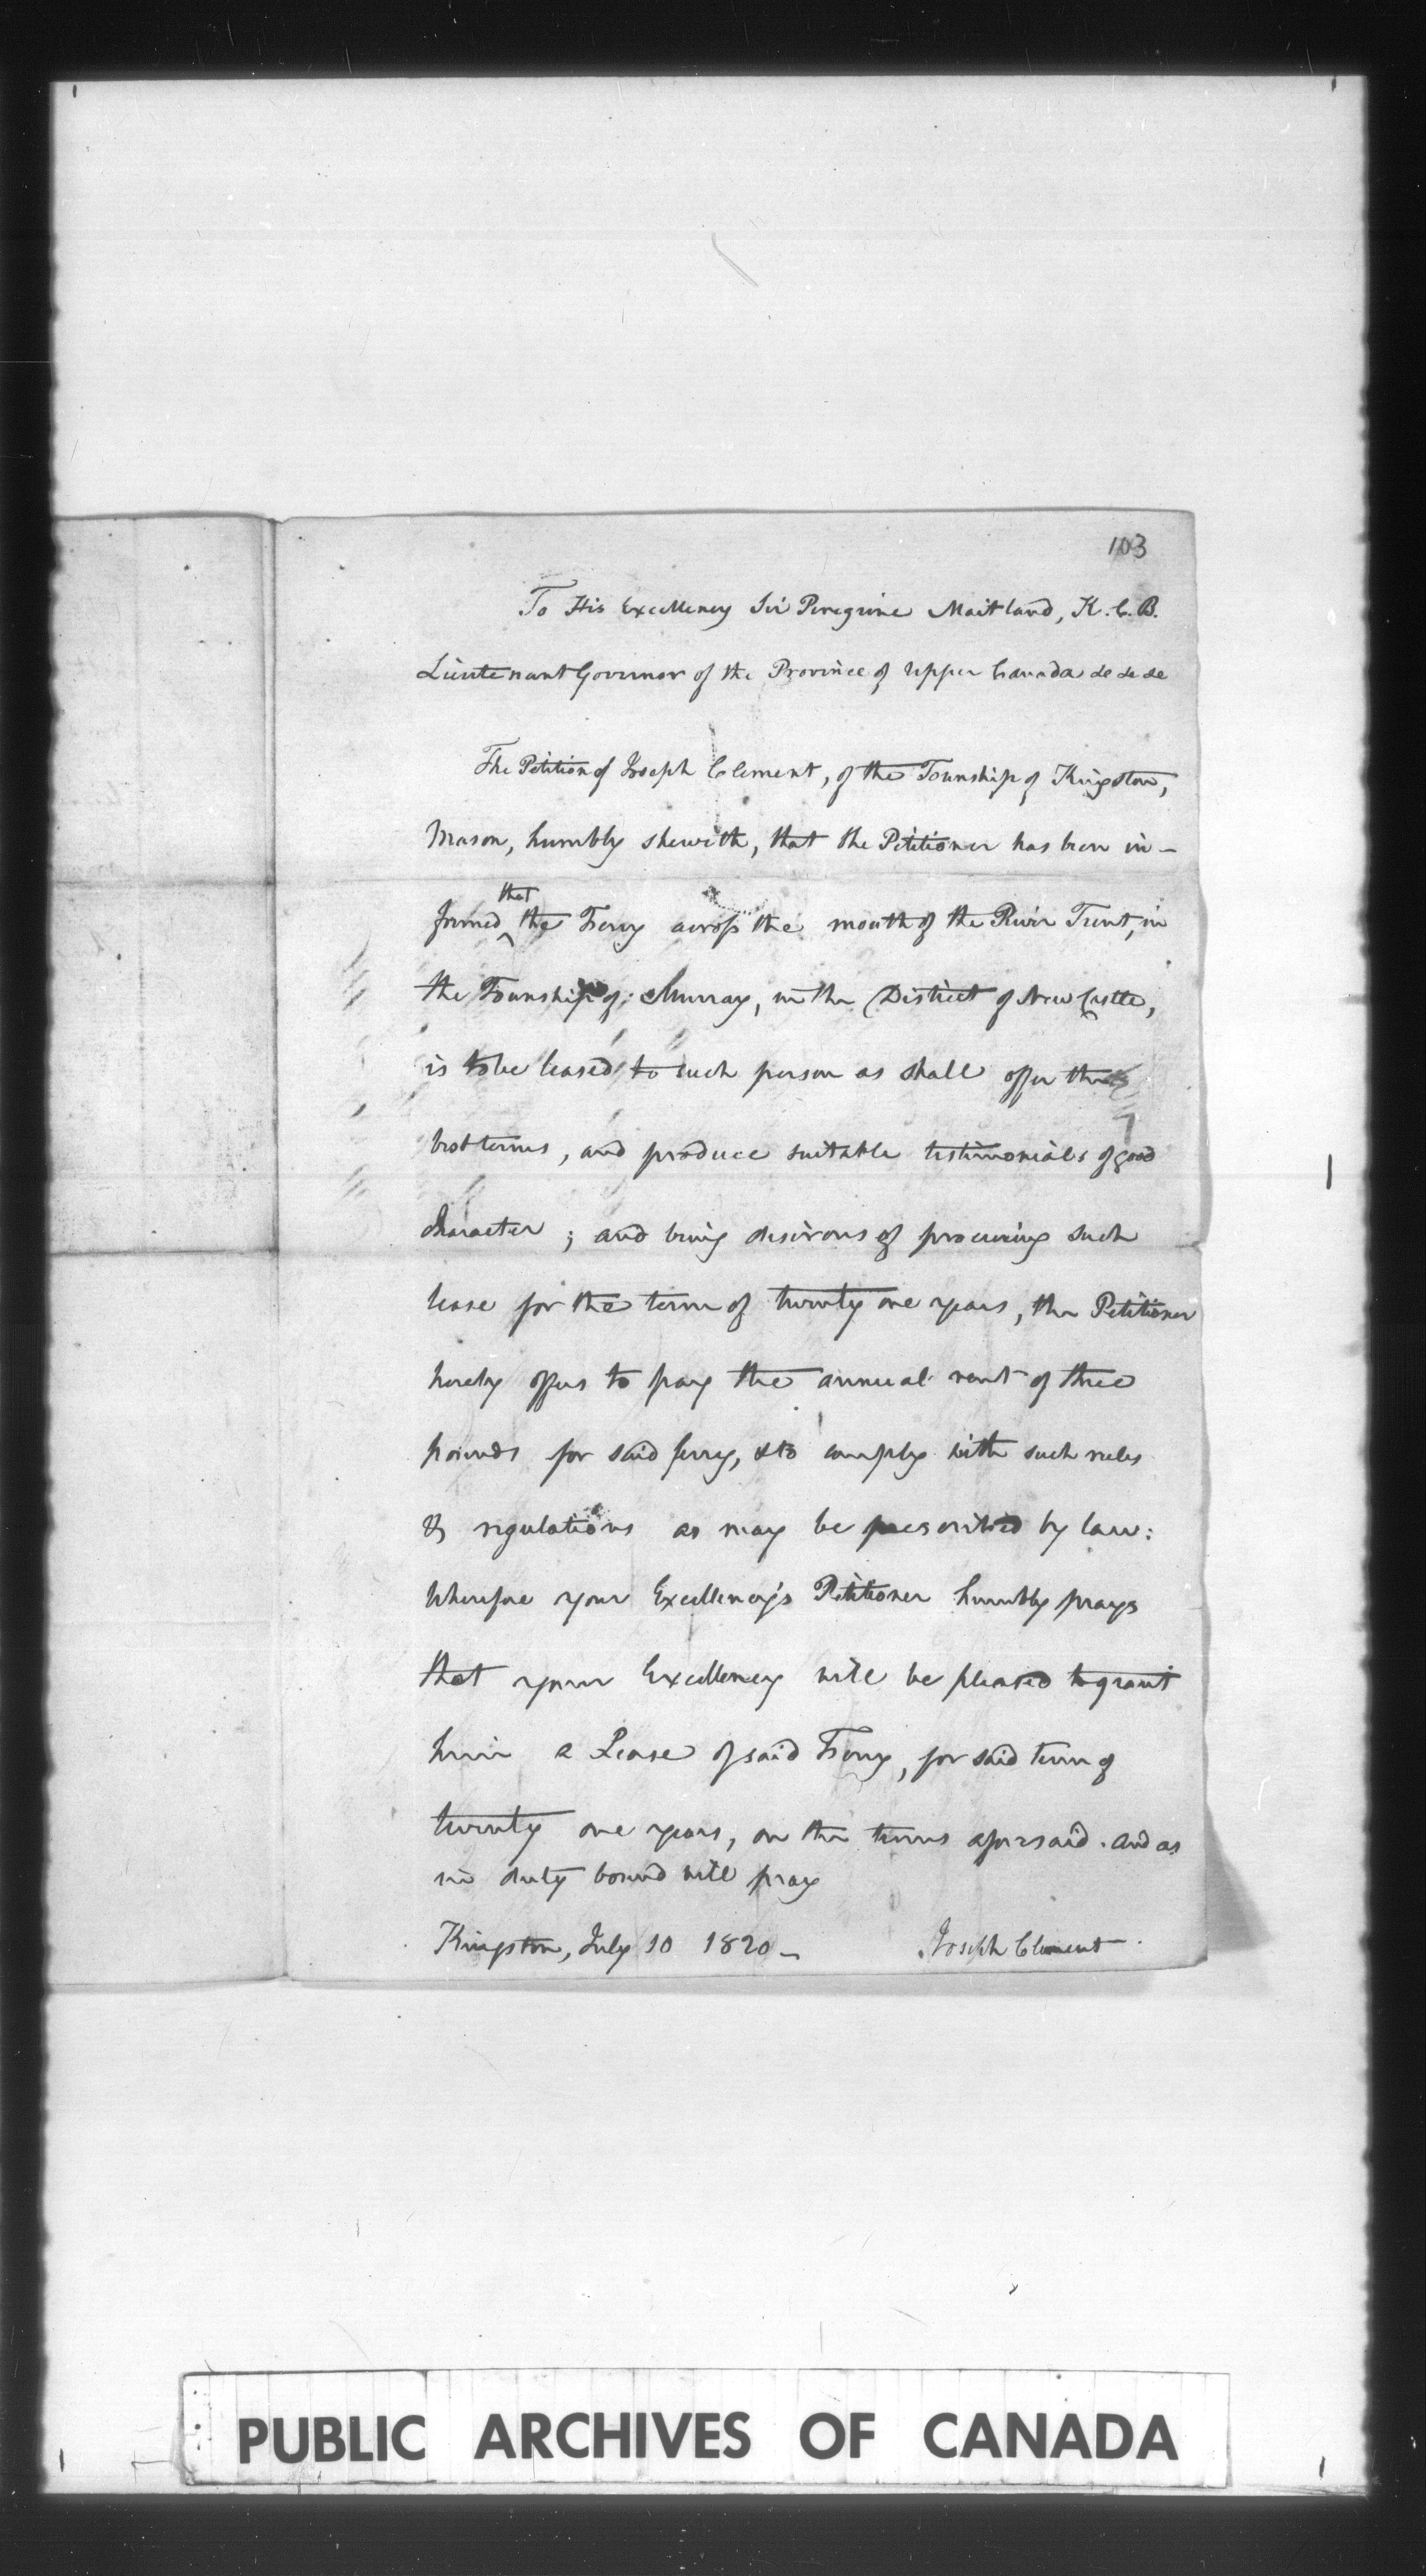 103
To His Excellency Sir Peregrine Maitland, K.C.B.
Lieutenant Governor of the Province of Upper Canada &c &c &c
The Petition of Joseph Clement, of the Township of Kingston,
Mason, humbly sheweth, that the Petitioner has been in-
formed that the Ferry across the mouth of the River Trent, in
the Township of Murray, in the District of New Castle,
is to be leased to such person as shall offer the
best terms, and produce suitable testimonials of good
character; and being desirous of procuring such
lease for the term of twenty one years, the Petitioner
hereby offers to pay the annual rent of three
pounds for said ferry, & to comply with such rules
& regulations as may be prescribed by law:
Wherefore your Excellency's Petitioner humbly prays
that your Excellency will be pleased to grant
him a Lease of said Ferry, for said term of
twenty one years, on the terms aforesaid. And as
in duty bound will pray
Kingston, July 10 1820 - Joseph Clement
PUBLIC ARCHIVES OF CANADA